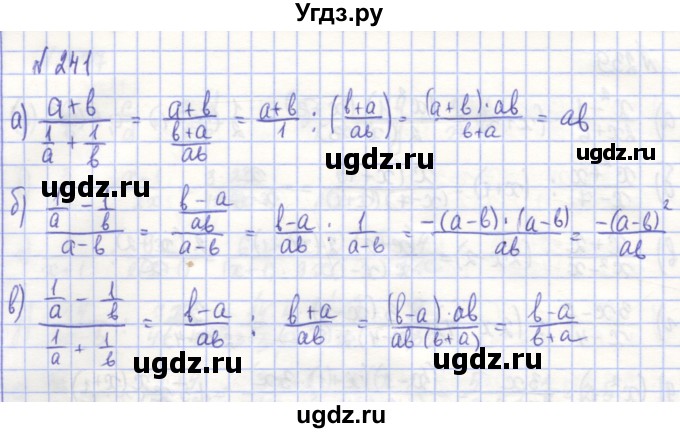 Угдз.ру
№ 241
а) (a+b)/(1/a + 1/b) = (a+b)/((b+a)/ab) = (a+b)/1 : ((b+a)/ab) = ((a+b)·ab)/(b+a) = ab
ugdz.ru ugdz.ru ugdz.ru
б) (1/a - 1/b)/(a-b) = ((b-a)/ab)/(a-b) = (b-a)/ab : 1/(a-b) = (-(a-b)·(a-b))/ab = (-(a-b)²)/ab
ugdz.ru ugdz.ru
в) (1/a - 1/b)/(1/a + 1/b) = (b-a)/ab : (b+a)/ab = ((b-a)·ab)/(ab(b+a)) = (b-a)/(b+a)
ugdz.ru ugdz.ru ugdz.ru
ugdz.ru